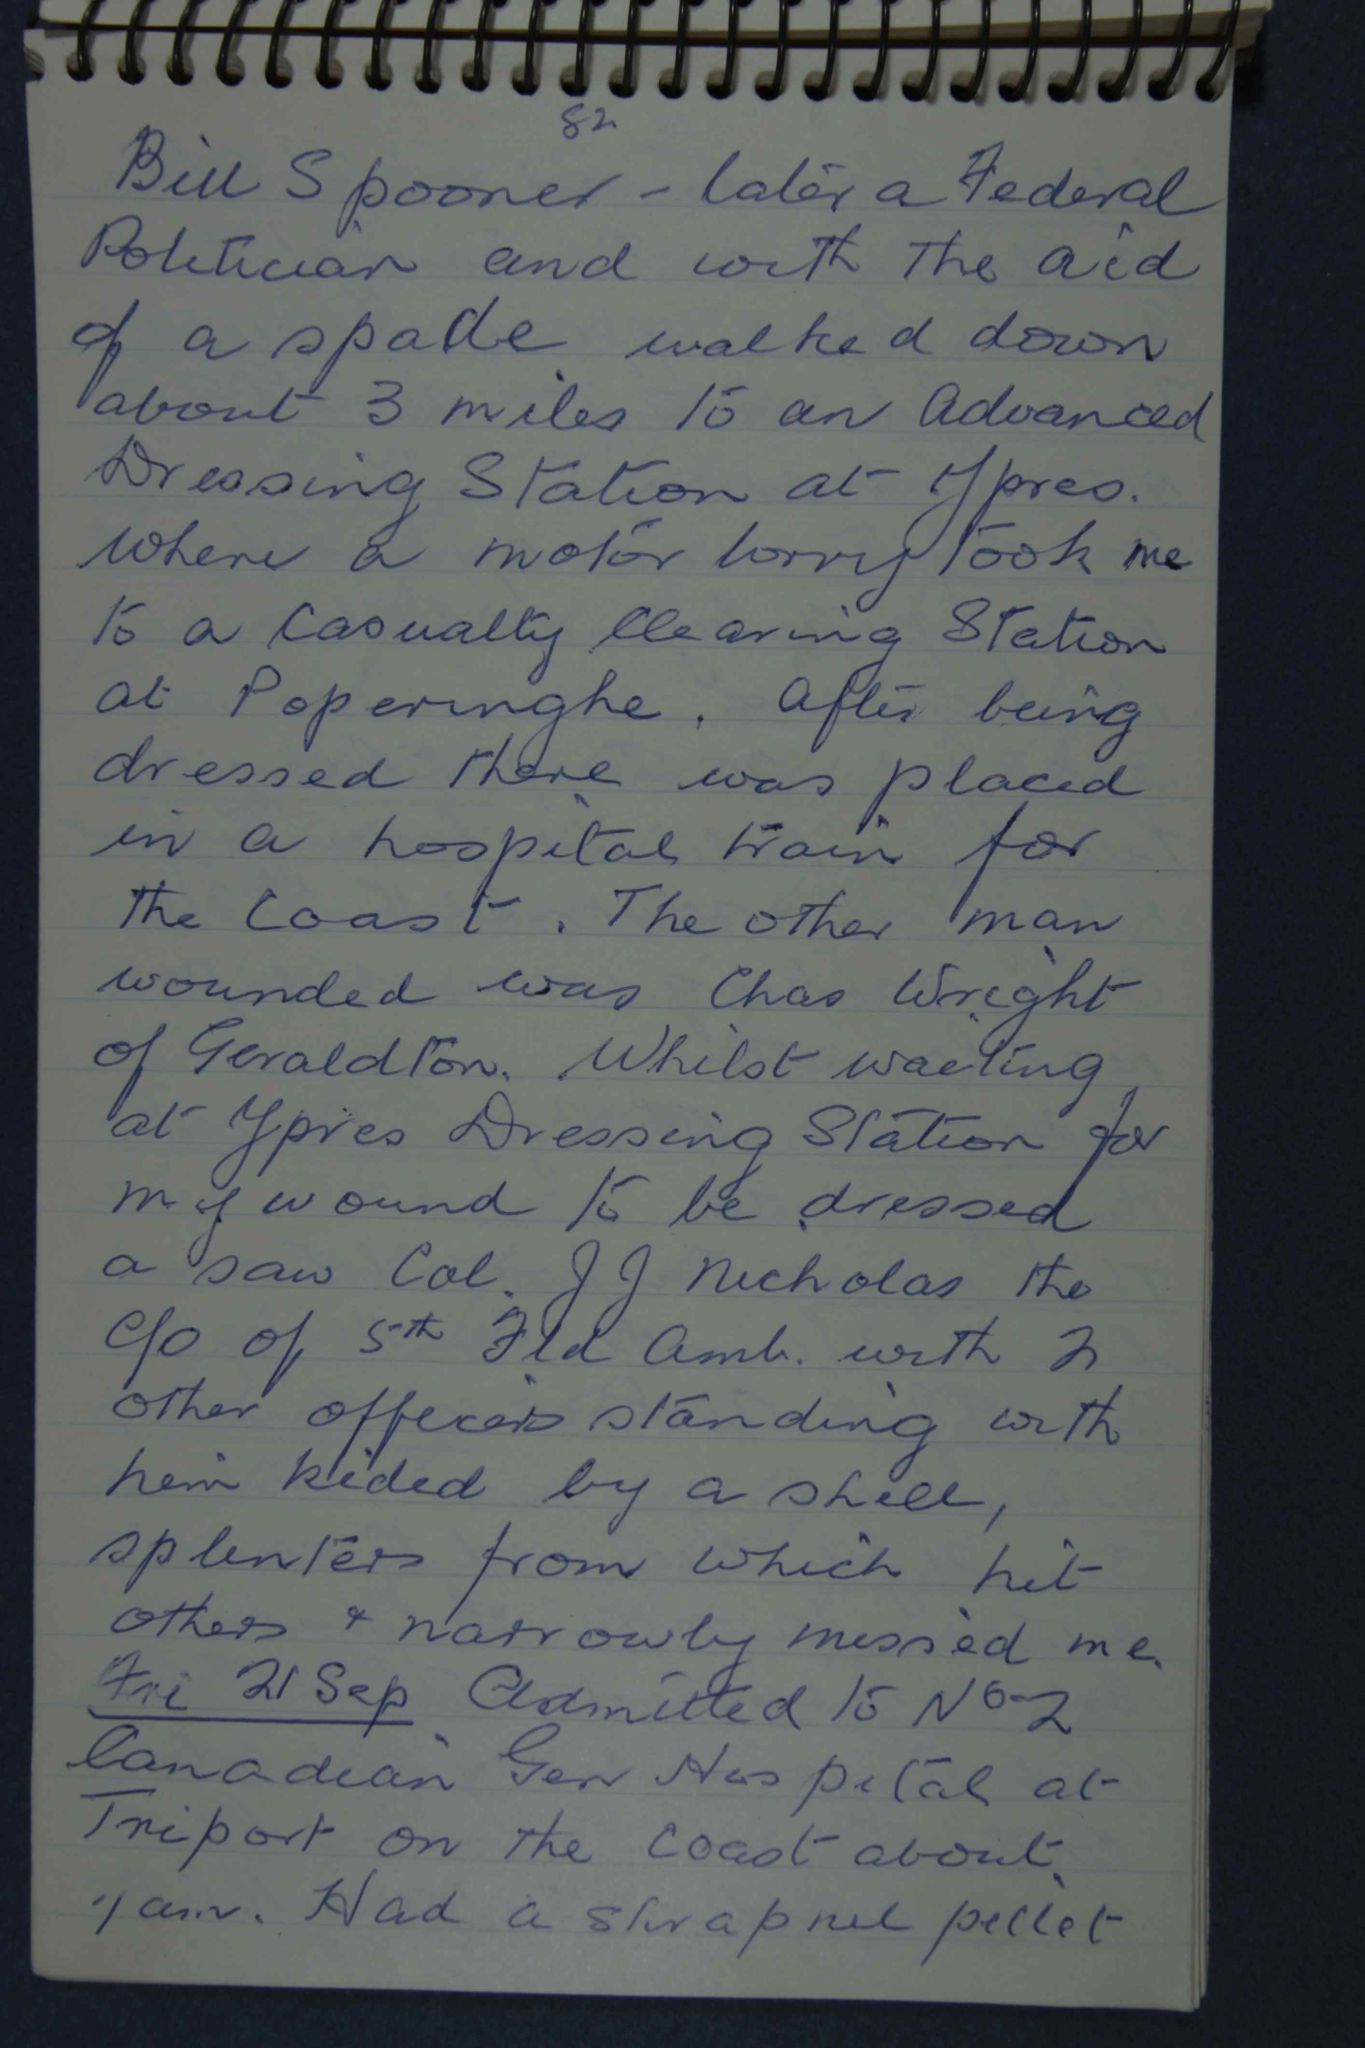 82
Bill Spooner - later a Federal
Politician and with the aid
of a spade walked down
about 3 miles to an Advanced
Dressing Station at Ypres.
where a motor lorry took me
to a Casualty Clearing Station
at Poperinghe. After being
dressed there was placed
in a hospital train for
the Coast. The other man
wounded was Chas Wright
of Geraldton. Whilst waiting
at Ypres Dressing Station for
my wound to be dressed
a saw Col. J J Nicholas the
C/O of 5th Fld Amb. with 2
other officers standing with
him killed by a shell,
splinters from which hit
others & narrowly missed me.
Fri 21 Sep Admitted to No 2
Canadian Gen Hospital at
Triport on the coast about
am. Had a shrapnel pellet